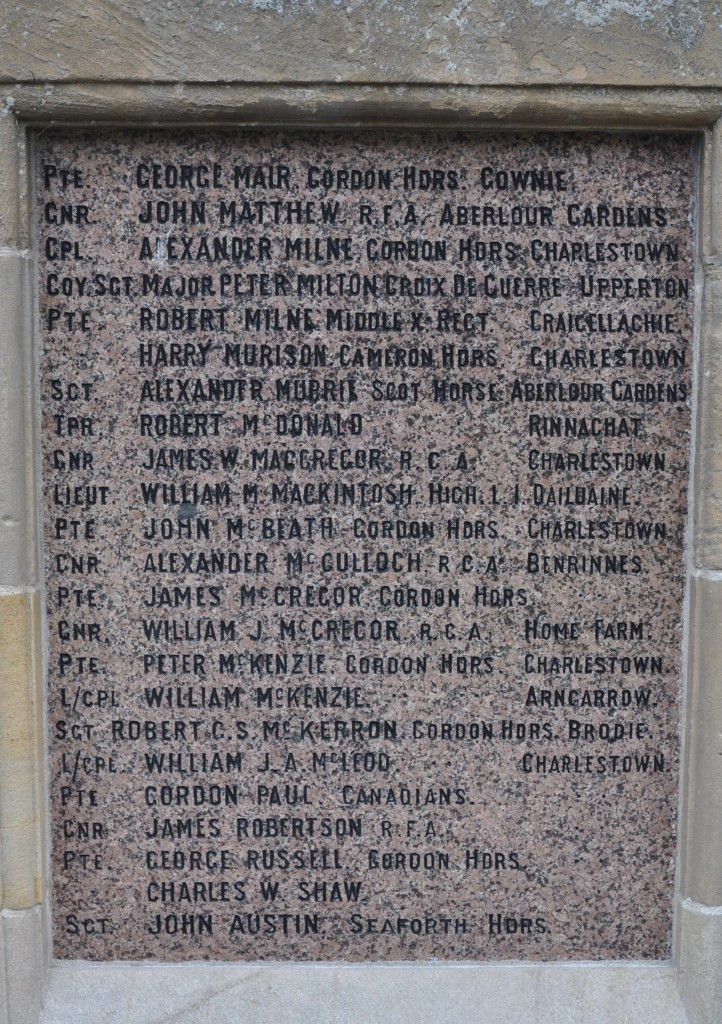 PTE. GEORGE MAIR, GORDON HDRS. GOWNIE.
GNR. JOHN MATTHEW, R.F.A. ABERLOUR GARDENS.
CPL. ALEXANDER MILNE, GORDON HDRS. CHARLESTOWN.
COY. SGT. MAJOR PETER MILTON CROIX DE GUERRE. UPPERTON
PTE. ROBERT MILNE MIDDLEX. REGT. CRAIGELLACHIE.
HARRY MURISON CAMERON HDRS. CHARLESTOWN
SGT. ALEXANDER SCOT HORSE. ABERLOUR GARDENS
TPR. ROBERT McDONALD RINNACHAT.
GNR. JAMES W. MACGREGOR. R.G.A. CHARLESTOWN.
LIEUT. WILLIAM M. MACKINTOSH, HIGH. L. I. DAILUAINE.
PTE. JOHN McBEATH GORDON HDRS. CHARLESTOWN.
GNR. ALEXANDER McCULLOCH, R.G.A. BENRINNES.
PTE. JAMES McGREGOR, GORDON HDRS.
GNR. WILLIAM J. McGREGOR, R.G.A. HOME FARM.
PTE. PETER McKENZIE. GORDON HDRS. CHARLESTOWN.
L/CPL. WILLIAM McKENZIE. ARNGARROW.
SGT. ROBERT C.S. McKERRON. GORDON HDRS. BRODIE.
L/CPL. WILLIAM J.A. McLEOD CHARLESTOWN.
PTE. GORDON PAUL. CANADIANS.
GNR. JAMES ROBERTSON R.F.A.
PTE. GEORGE RUSSELL, GORDON HDRS.
CHARLES W. SHAW.
SGT. JOHN AUSTIN. SEAFORTH HDRS.